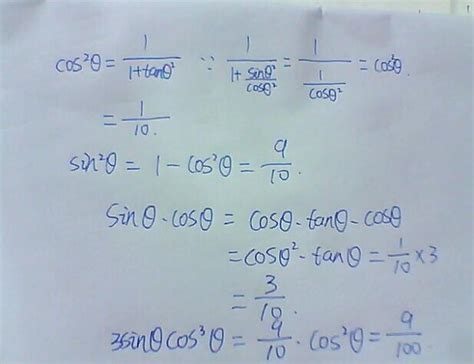 cos²θ = 1/(1+tanθ²) ∵ 1/(1+sinθ²/cosθ²) = 1/(1/cosθ²) = cos²θ.
= 1/10.
sin²θ = 1 - cos²θ = 9/10.
sinθ·cosθ = cosθ·tanθ·cosθ
= cosθ²·tanθ = 1/10 × 3
= 3/10.
3sinθcos³θ = 9/10 · cos²θ = 9/100